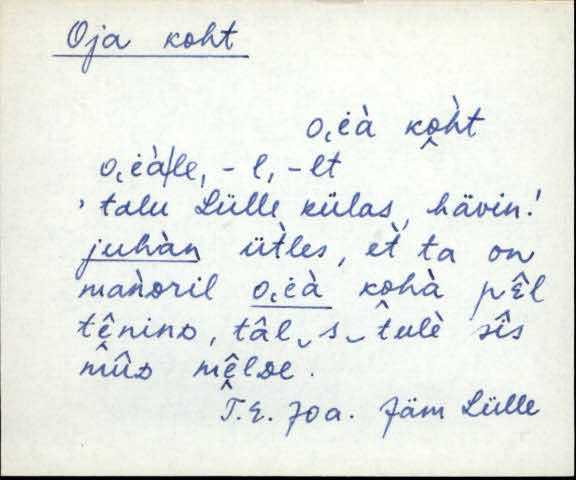 Oja koht
o̭i̭ɛ̀à kò̭ht
o̭i̭ɛ̀à|le, -l, -lt
, talu Lülle külas, hävin!
juhàn ütles, èt ta on
manòril o̭i̭ɛ̀à kohà pêl
tênino, tâl‿s‿tulè sîs
mûᴅ mêlᴅe.
T.E. 70a. Jäm Lülle